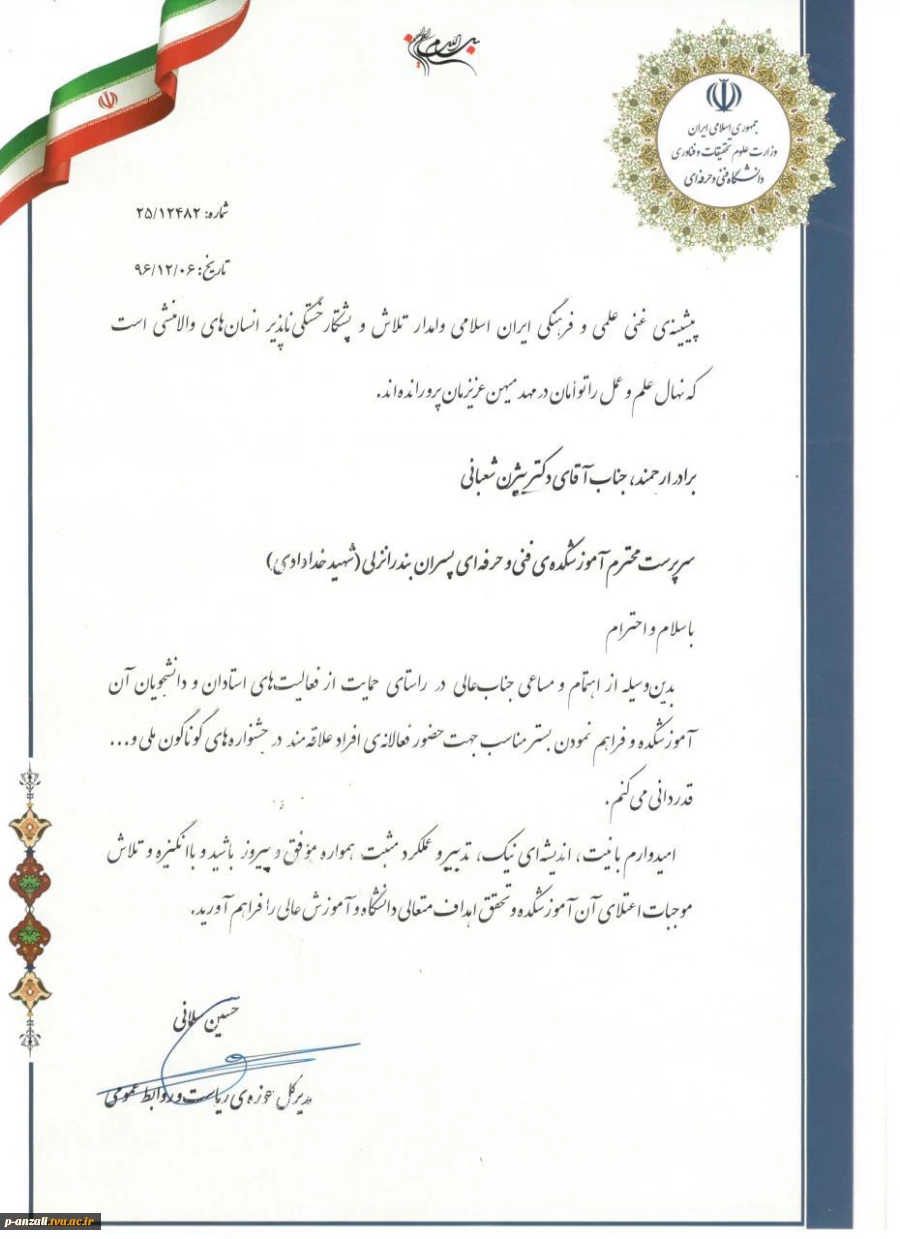 بسم الله الرحمن الرحیم
جمهوری اسلامی ایران
وزارت علوم تحقیقات و فناوری
دانشگاه فنی و حرفه‌ای
شماره: ۲۵/۱۲۴۸۲
تاریخ: ۹۶/۱۲/۰۶
پیشینه‌ی غنی علمی و فرهنگی ایران اسلامی وامدار تلاش و پشتکار خستگی‌ناپذیر انسان‌های والامنشی است
که نهال علم و عمل را توأمان در مهد میهن عزیزمان پرورانده‌اند.
برادر ارجمند، جناب آقای دکتر بیژن شعبانی
سرپرست محترم آموزشکده‌ی فنی و حرفه‌ای پسران بندرانزلی (شهید خدادادی)
با سلام و احترام
بدین‌وسیله از اهتمام و مساعی جناب‌عالی در راستای حمایت از فعالیت‌های استادان و دانشجویان آن
آموزشکده و فراهم نمودن بستر مناسب جهت حضور فعالانه‌ی افراد علاقه‌مند در جشنواره‌های گوناگون ملی و...
قدردانی می‌کنم.
امیدوارم با نیت، اندیشه‌ای نیک، تدبیر و عملکرد مثبت همواره موفق و پیروز باشید و با انگیزه و تلاش
موجبات اعتلای آن آموزشکده و تحقق اهداف متعالی دانشگاه و آموزش عالی را فراهم آورید.
حسین
مدیرکل حوزه‌ی ریاست و روابط عمومی
p-anzali.tvu.ac.ir